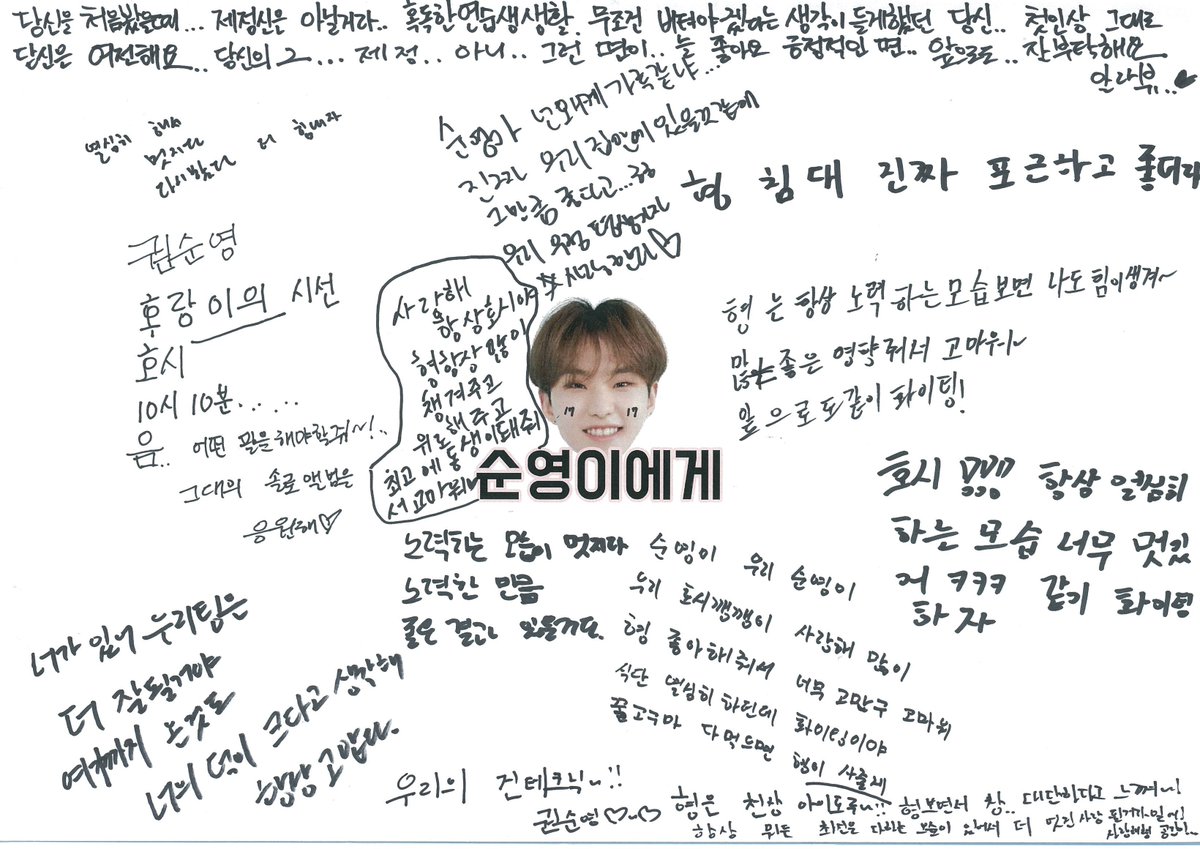 당신을 처음봤을때... 제정신은 아닐거라.. 혹독한 연습생생활. 무조건 버텨야겠다는 생각이 들게했던 당신.. 첫인상 그대로
당신은 여전해요.. 당신의 그... 제정.. 아니.. 그런 면이.. 늘 좋아요 긍정적인 면.. 앞으로도.. 잘부탁해요
알라뷰..
열심히 해서
멋지다
다시봤다
더 힘내자
순영아 넌 왜케 가족같냐...
진짜 우리 집안에 있을꺼같애
그만큼 좋다고...
우리 우정
사랑한다♡
형 침대 진짜 포근하고 좋더라
권순영
호랑이의 시선
호시
10시 10분......
음.. 어떤 말을 해야할쥐~!..
그대의 솔로앨범을
응원해♡
사랑해
항상 호시야
형 항상 많이
챙겨주고
위로해주고
최고에 동생이 돼줘
서 고마워
17 17
순영이에게
형 는 항상 노력하는모습보면 나도 힘이생겨~
좋은 영향 줘서 고마워~
앞으로도같이 화이팅!
호시 항상 열심히
하는 모습 너무 멋있
어 ㅋㅋㅋ 같이 화이팅
하자
노력하는 모습이 멋지다
노력한 만큼
좋은 결과 있을거다.
순영이 우리 순영이
우리 호시깽깽이 사랑해 많이
형 좋아해줘서 너무 고맙구 고마워
식단 열심히 하던데 화이팅이야
꿀고구마 다 먹으면 형이 사줄게
너가 있어 우리팀은
더 잘될거야
여기까지 온것도
너의 덕이 크다고 생각해
항상 고맙다.
우리의 진테크닉~!!
권순영♡~♡
형은 천상 아이돌루~!! 형보면서 참.. 대단하다고 느껴~!
항상 뭐든 최선을 다하는 모습이 있어서 더 멋진사람 된거가틈!